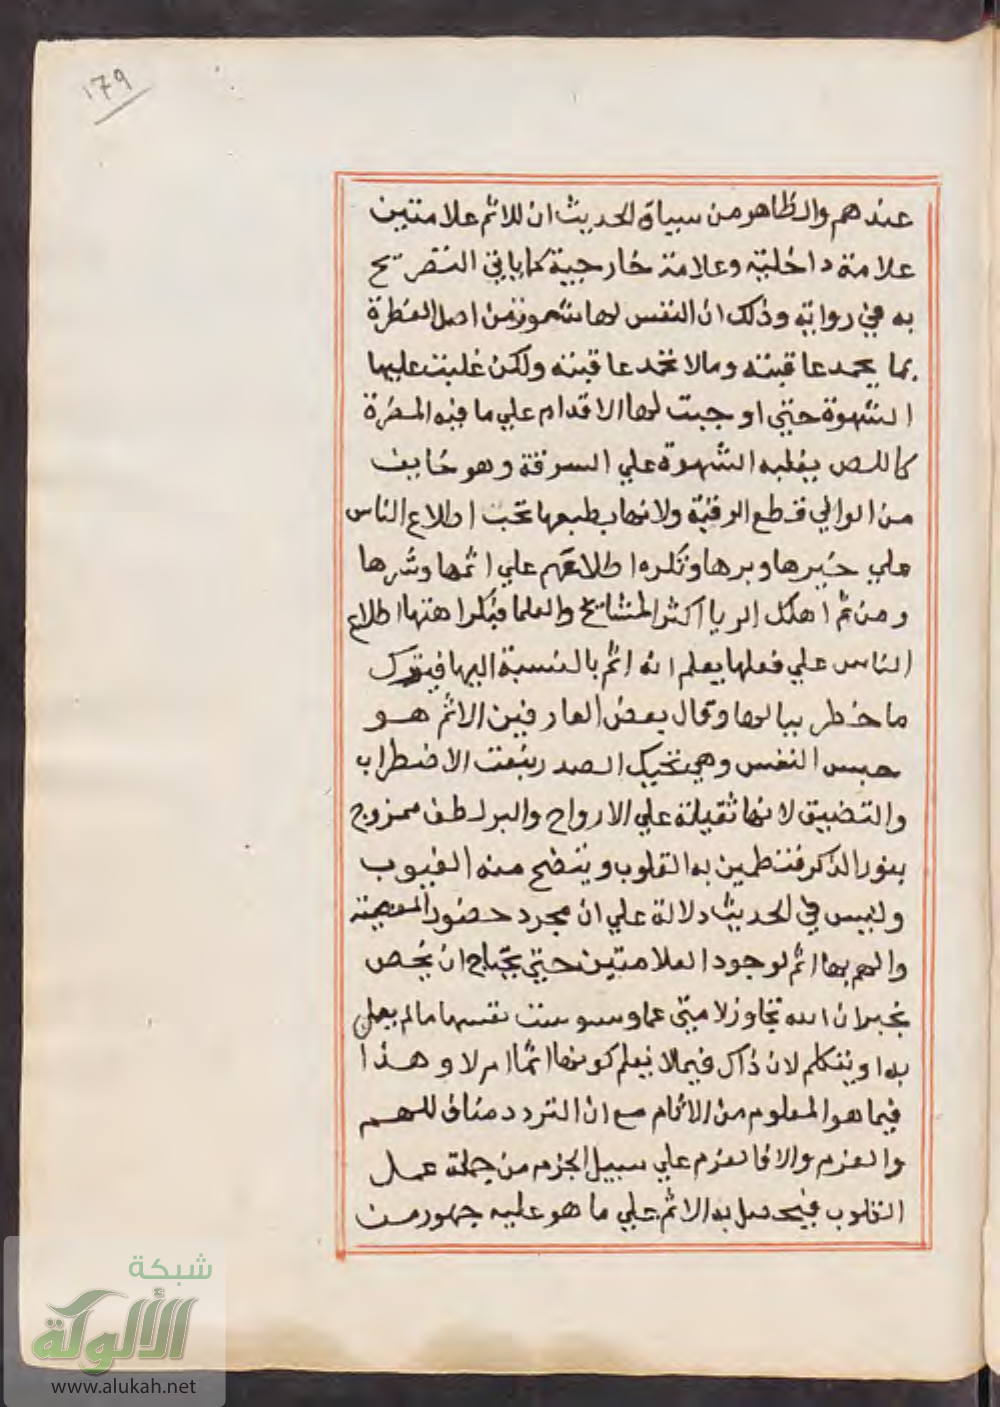 ١٧٩
عندهم والظاهر من سياق الحديث ان للاثم علامتين
علامة داخلية وعلامة خارجية كما ياتي التصريح
به في رواية وذلك ان النفس لها شعور من اصل الفطرة
بما يحمد عاقبته وما لا تحمد عاقبته ولكن غلبت عليها
الشهوة حتي اوجبت لها الاقدام علي ما فيه المضرة
كاللص يغلبه الشهوة علي السرقة وهو خايف
من الوالي قطع الرقبة ولانها بطبعها تحب اطلاع الناس
علي خيرها وبرها وتكره اطلاعهم علي اثمها وشرها
ومن ثم اهلك الريا اكثر المشايخ والعلما فبكراهتها اطلاع
الناس علي فعلها يعلم انه اثم بالنسبة اليها فيترك
ما خطر ببالها وقال بعض العارفين الاثم هو
حبس النفس وهي تحيك الصدر بنعت الاضطراب
والتضييق لانها ثقيلة علي الارواح والبر لطف ممزوج
بنور الذكر فتطمين به القلوب ويتضح منه الغيوب
وليس في الحديث دلالة علي ان مجرد حضور المعصية
والهم بها اثم لوجود العلامتين حتي يحتاج ان يخص
بخبر ان الله تجاوز لامتي عما وسوست نفسها ما لم يعمل
به او يتكلم لان ذاك فيما لا يعلم كونها اثما ام لا وهذا
فيما هو المعلوم من الاثام مع ان التردد مناف للهم
والعزم والا فالعزم علي سبيل الجزم من جملة عمل
القلوب فيحصل به الاثم علي ما هو عليه جمهور من
شبكة
الألوكة
www.alukah.net